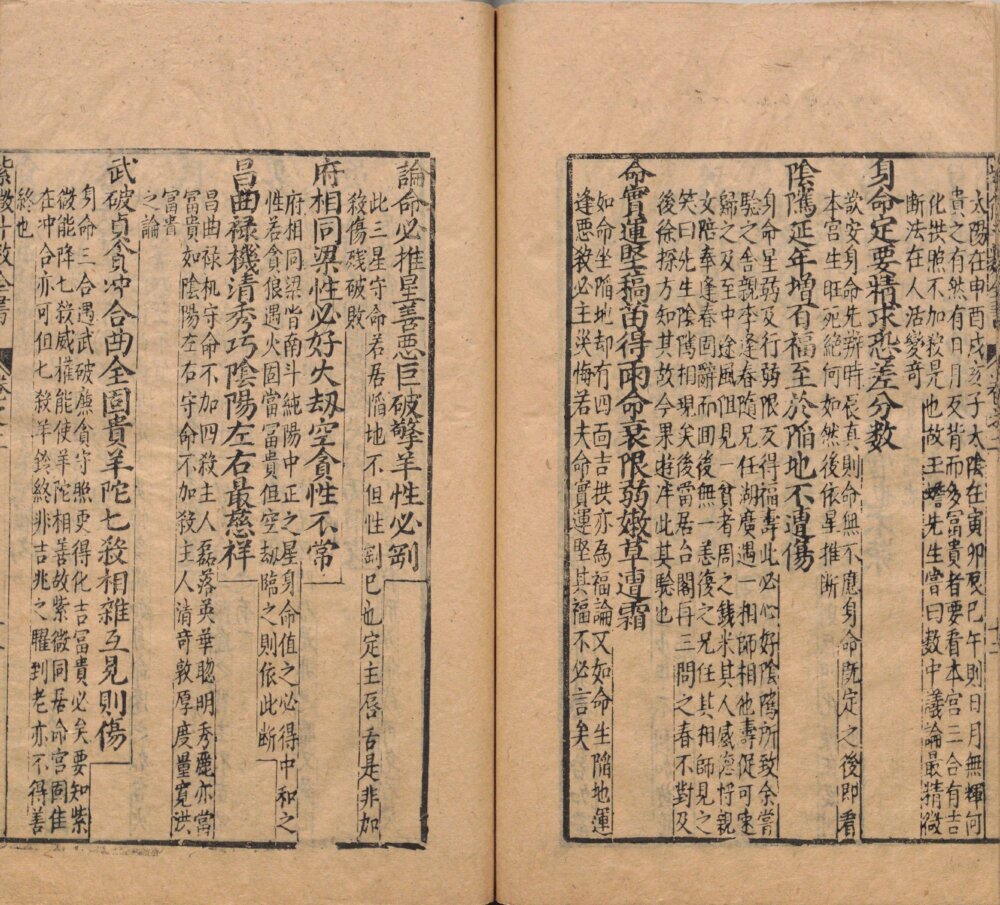 太陽在申酉戌亥子太陰在寅卯辰巳午則日月無輝何
貴之有然有日月反背而多冨貴者要看本宫三合有吉
化拱照不加殺是也故王蟾先生嘗曰数中議論最精微
断法在人活變竒
身命定要精求恐差分数
欲安身命先辨時辰真則命無不應身命既定之後即看
本宫生旺死絶何如然後依星推断
陰隲延年增百福至於陷地不遭傷
身命星弱及行弱限反得福壽此必心好陰隲所致余嘗
驗之及舎親李逢春隨兄任湖廣遇一相師相他壽促可速
歸之及至中途風阻見一貧者周之錢米其人感德將親
女陪奉逢春固辭而囬後無一恙復之兄任其相師見之
笑曰先生陰隲相現矣後當居台閣再三問之春不對及
後徐探方知其故今果遊泮此其驗也
命實運堅稿苗得雨命衰限弱嫩草遭霜
如命坐陷地却有四面吉拱亦為福論又如命生陷地運
逢悪殺必主災悔若夫命實運堅其福不必言矣
論命必推星善惡巨破擎羊性必剛
此三星守命若居陷地不但性剛已也定主唇舌是非加
殺傷殘破敗
府相同梁性必好火劫空貪性不常
府相同梁皆南斗純陽中正之星身命值之必得中和之
性若貪狼遇火固當冨貴但空劫臨之則依此断
昌曲禄機清秀巧陰陽左右最慈祥
昌曲禄机守命不加四殺主人磊落英華聦明秀麗亦當
冨貴如陰陽左右守命不加殺主人清竒敦厚度量寛洪
冨貴
之論
武破貞貪冲合曲全固貴羊陀七殺相雜互見則傷
身命三合遇武破廉貪守照更得化吉冨貴必矣要知紫
微能降七殺威權能使羊陀相善故紫微同居命宫固佳
在冲合亦可但七殺羊鈴終非吉兆之曜到老亦不得善
終也